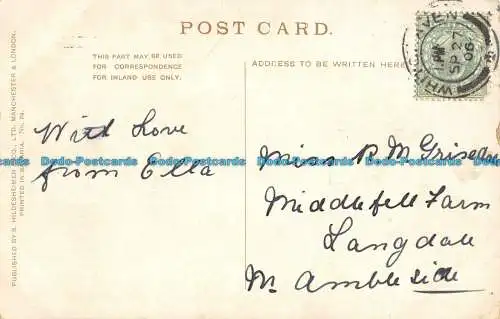 POST CARD.
THIS PART MAY BE USED
FOR CORRESPONDENCE
FOR INLAND USE ONLY.
ADDRESS TO BE WRITTEN HERE
WHITEHAVEN
PM
SP 27
06
With Love
from Ella
Miss R M Grisedale
Middlefell Farm
Langdale
Nr. Ambleside
PUBLISHED BY S. HILDESHEIMER & CO., LTD. MANCHESTER & LONDON.
PRINTED IN BAVARIA. No.
Dodo-Postcards Dodo-Postcards Dodo-Postcards Dodo-Postcards Dodo-Postcards Dodo-Postcards